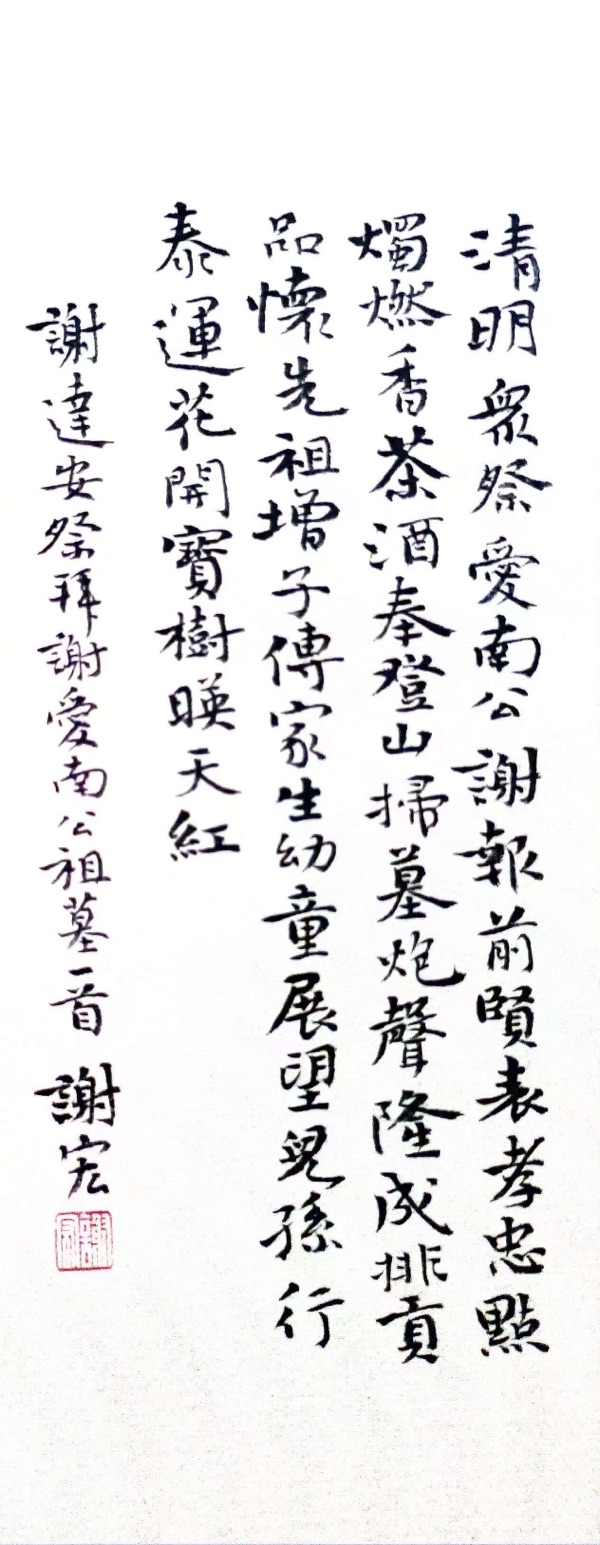 清明衆祭愛南公謝報前賢表孝忠點
燭燃香茶酒奉登山掃墓炮聲隆成排貢
品懷先祖增子傳家生幼童展望兒孫行
泰運花開寶樹暎天紅
謝達安祭拜謝愛南公祖墓一首 謝宏